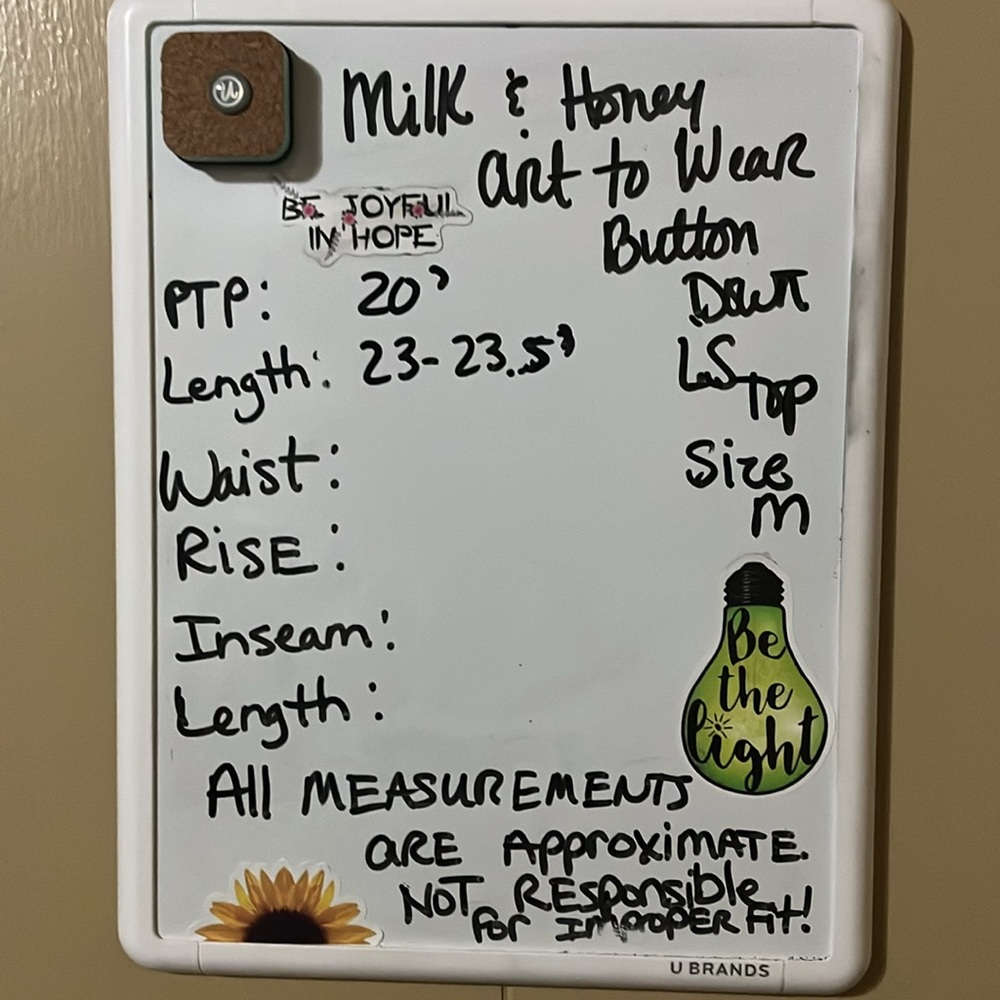 Milk & Honey
Art to Wear
Button
Down
LS
Top
Size
M
BE JOYFUL
IN HOPE
PTP: 20"
Length: 23-23.5"
Waist:
RISE:
Inseam:
Length:
Be
the
light
All MEASUREMENTS
ARE ApproximATE.
NOT RESponsible
For ImpropER Fit!
U BRANDS